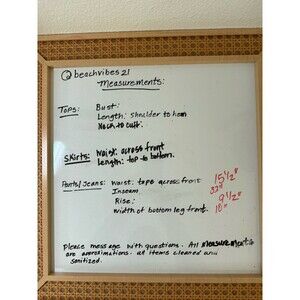 beachvibes21
Measurements:
Tops: Bust:
Length: Shoulder to hem
Neck to cuff.
Skirts: Waist: across front
Length: top to bottom.
Pants/Jeans: Waist: taps across front 15 1/2"
Inseam
Rise: 9 1/2"
Width of bottom leg front.
Please message with questions. All measurements
are approximations. all items cleaned and
sanitized.